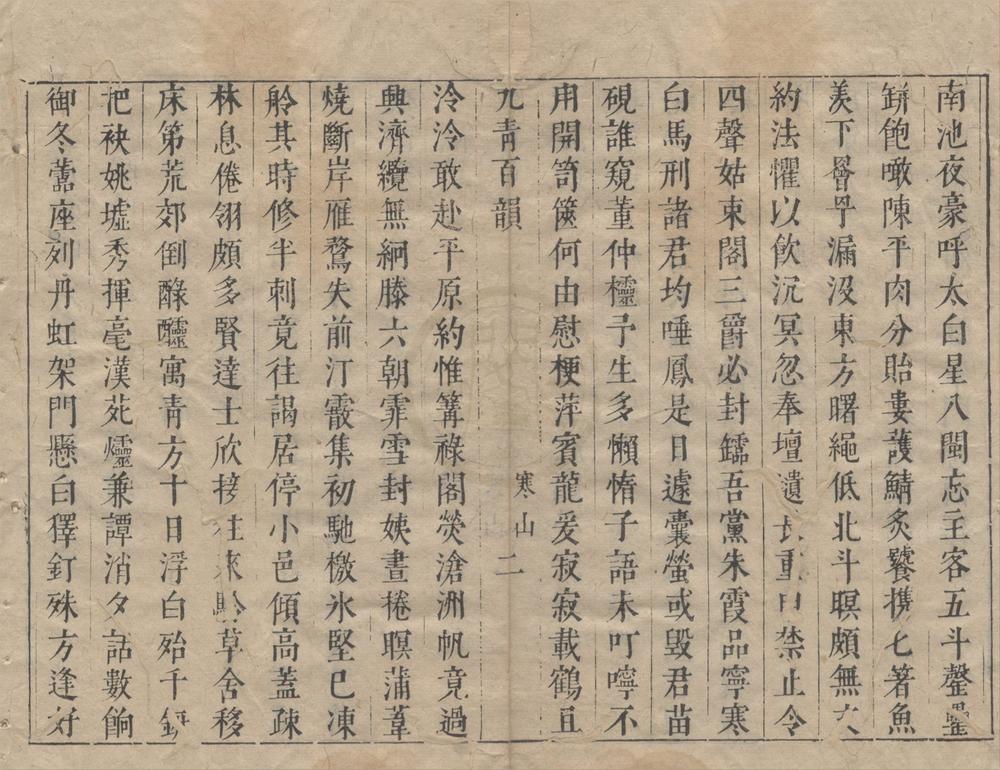 南池夜豪呼太白星八閩忘主客五斗罄罍
缾飽噉陳平肉分貽婁護鯖炙饕携匕箸魚
羙下罾㫪漏沒東方曙繩低北斗暝頗無六
約法懼以飲沉冥忽奉壇遺長重申禁止令
四聲姑束閣三爵必封鐳吾黨朱霞品寧寒
白馬刑諸君均唾鳳是日遽囊螢或毁君苗
硯誰窺董仲櫺予生多懶惰子語未叮嚀不
用開笥篋何由慰梗萍賓龍爰寂寂載鶴且
九青百韻
寒山
二
泠泠敢赴平原約惟篝祿閣熒滄洲帆竟過
興濟纜無絅滕六朝霏雪封姨晝捲暝蒲葦
燒斷岸雁鶩失前汀霰集初馳檄氷堅已凍
舲其時修半刺竟往謁居停小邑傾高蓋疎
林息倦翎頗多賢達士欣接往來軨草舍移
床第荒郊倒醁醽寓青方十日浮白殆千缾
把袂姚墟秀揮毫漢苑爧兼譚消夕話數餉
御冬蕾座列丹虹架門懸白獛釘殊方逢好